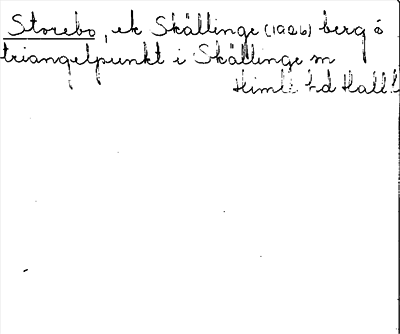 Storebo, ek Skällinge (1926) berg o
triangelpunkt i Skällinge sn
Himle hd Hall